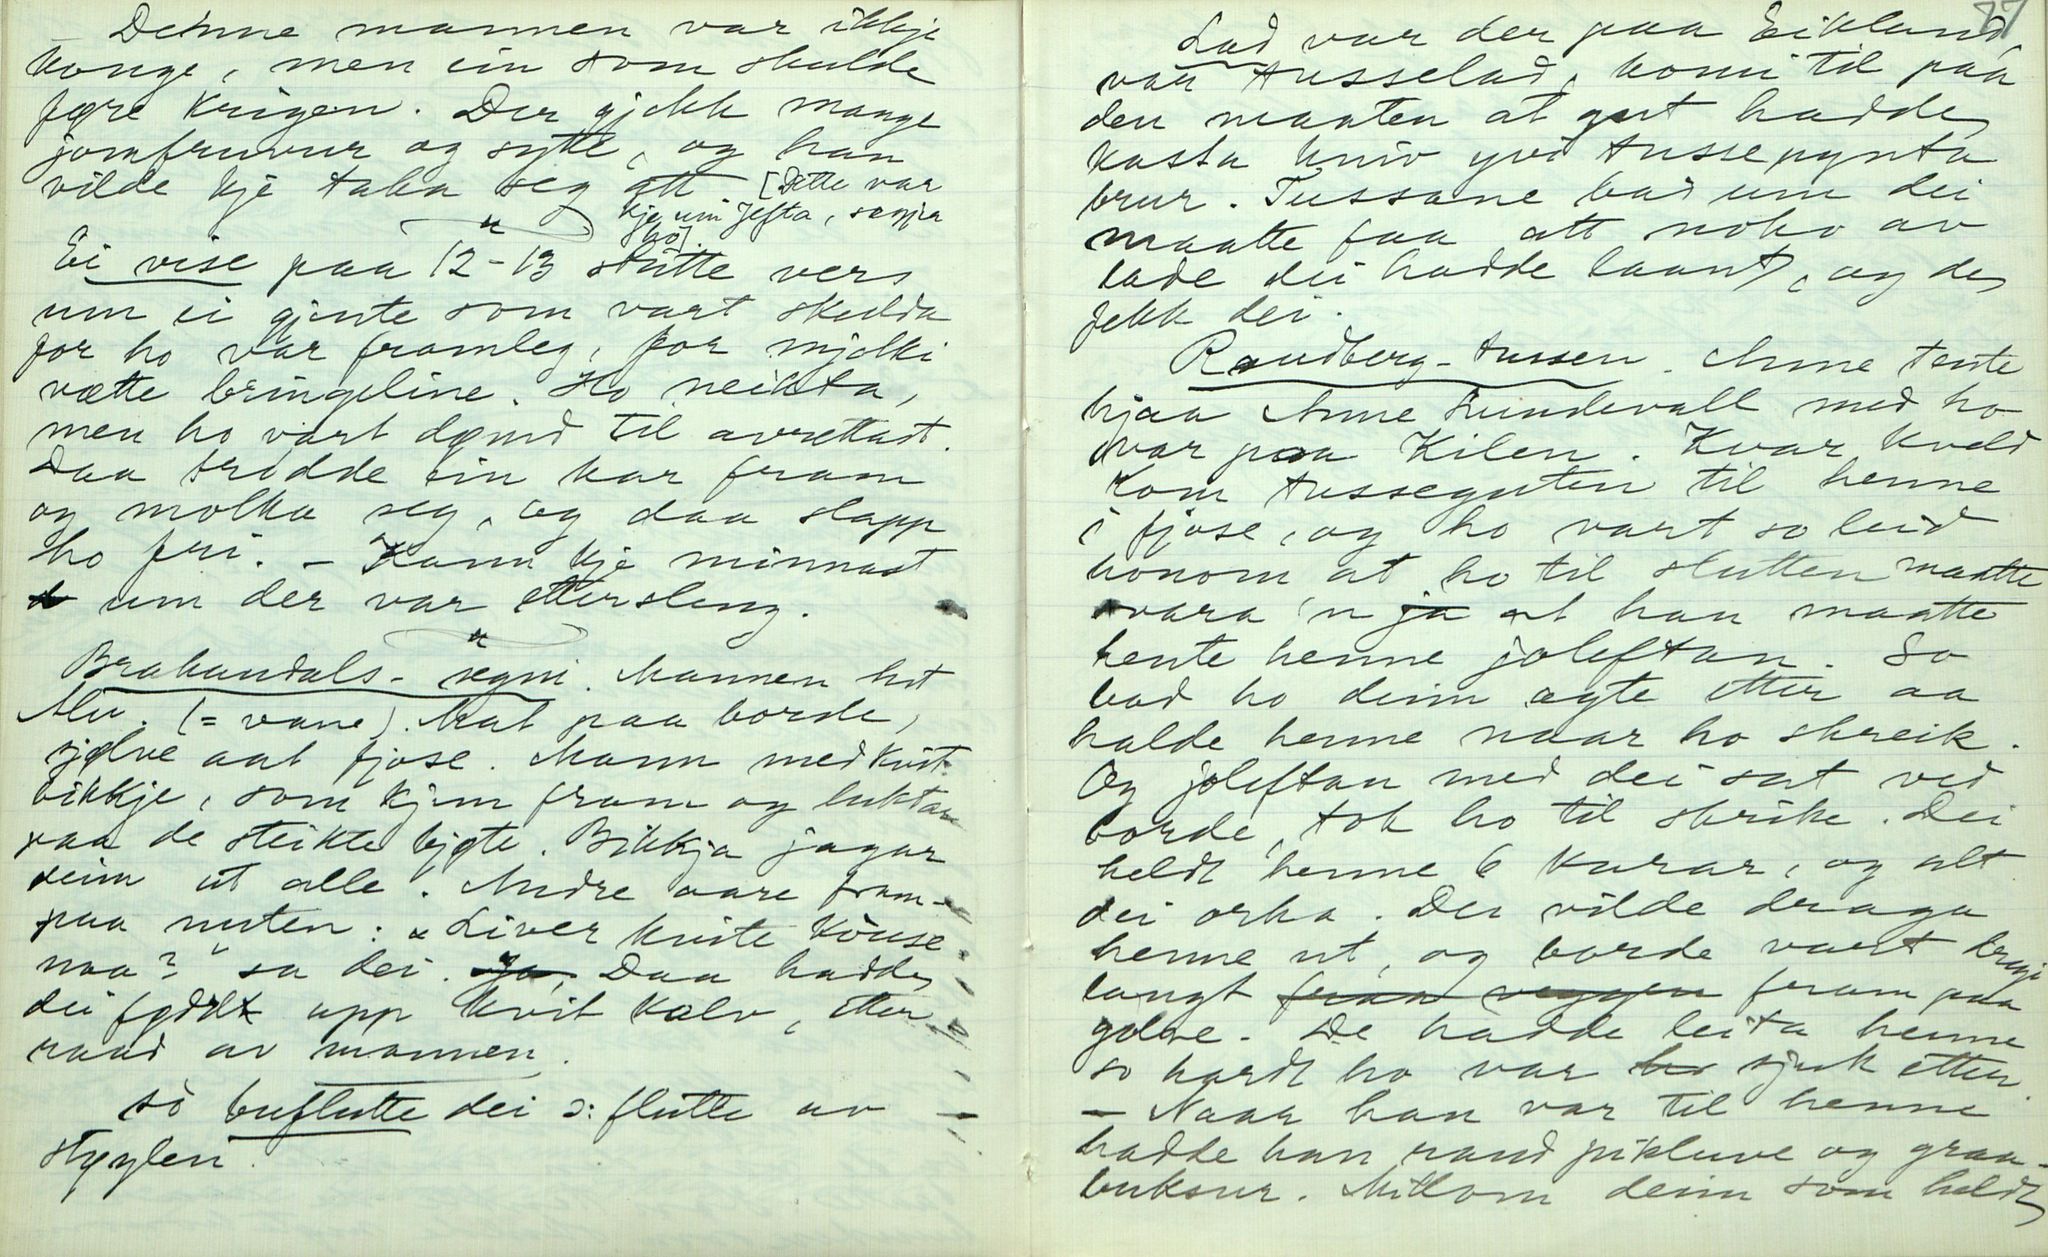 Denne mannen var ikkje
konge, men ein som skulde
føre krigen. Der gjekk mange
jomfruvur og sytte, og han
vilde kje taka seg att. [Dette var
kje um Jefta, segjer
ho].
"
Ei vise paa 12-13 stutte vers
um ei gjente som vart skulda
for ho var framleg, for mjølki
vætte bringeline. Ho neikta,
men ho vart dømd til avrettast.
Daa trødde ein kar fram
og molka seg, og daa slapp
ho fri. – Kann kje minnast
um der var ettersleng.
"
Brakandals-segni. Mannen het
(= vane). Mat paa borde,
sjølve aat fjose. Mann med kvit-
bikkje, som kjem fram og luktar
paa de steikte kjøte. Bikkja jagar
deim ut alle. Andre aare fram-
paa nuten: "Liver kvite kouse
naa?" sa dei. Ja, Daa hadde
dei født upp kvit kalv, etter
raad av mannen.
So buflutte dei ɔ: flutte av
støylen.
77
Lad var der paa Eikland,
var tusselad, komi til paa
den maaten at gut hadde
kasta kniv yvi tussepynta
brur. Tussane bad um dei
maatte faa att noko av
lade dei hadde laant, og de
fekk dei.
Raudberg-tussen. Anne tente
hjaa Anne Lundevall med ho
var paa Kilen. Kvar kveld
kom tusseguten til henne
i fjose, og ho vart so leid
honom at ho til slutten maatte
svara 'n ja at han maatte
hente henne joleftan. So
bad ho deim agte etter aa
halde henne naar ho skreik.
Og joleftan med dei sat ved
borde, tok ho til skrike. Dei
heldt henne 6 karar, og alt
dei orka. De vilde draga
henne ut, og borde vart dregi
langt fraa veggen fram paa
golve. De hadde leita henne
so hardt ho var ho sjuk etter.
– Naar han var til henne
hadde han raud pikluve og graa-
buksur. Millom deim som heldt